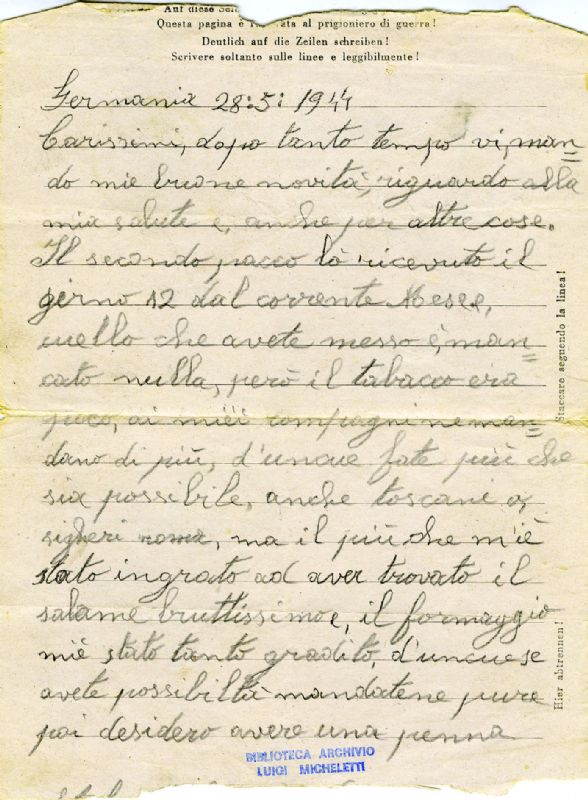 Auf diese
Questa pagina è al prigioniero di guerra!
Deutlich auf die Zeilen schreiben!
Scrivere soltanto sulle linee e leggibilmente!
Germania 28:5: 1944
Carissimi, dopo tanto tempo vi, man=
do mie buone novità, riguardo alla
mia salute e, anche per altre cose.
Il secondo pacco lò ricevuto il
girno 12 dal corrente Mese,
uello che avete messo è, man=
cato nulla, però il tabacco era
poco, ai miei compagni ne man=
dano di più, d'uncue fate più che
sia possibile, anche toscani o,
sigheri roma, ma il più che m'iè
stato ingrato ad aver trovato il
salame bruttissimo e, il formaggio
miè stato tanto gradito, d'uncue se
avete possibiltà mandatene pure
poi desidero avere una penna
Staccare seguendo la linea!
Hier abtrennen!
BIBLIOTECA ARCHIVIO
LUIGI MICHELETTI